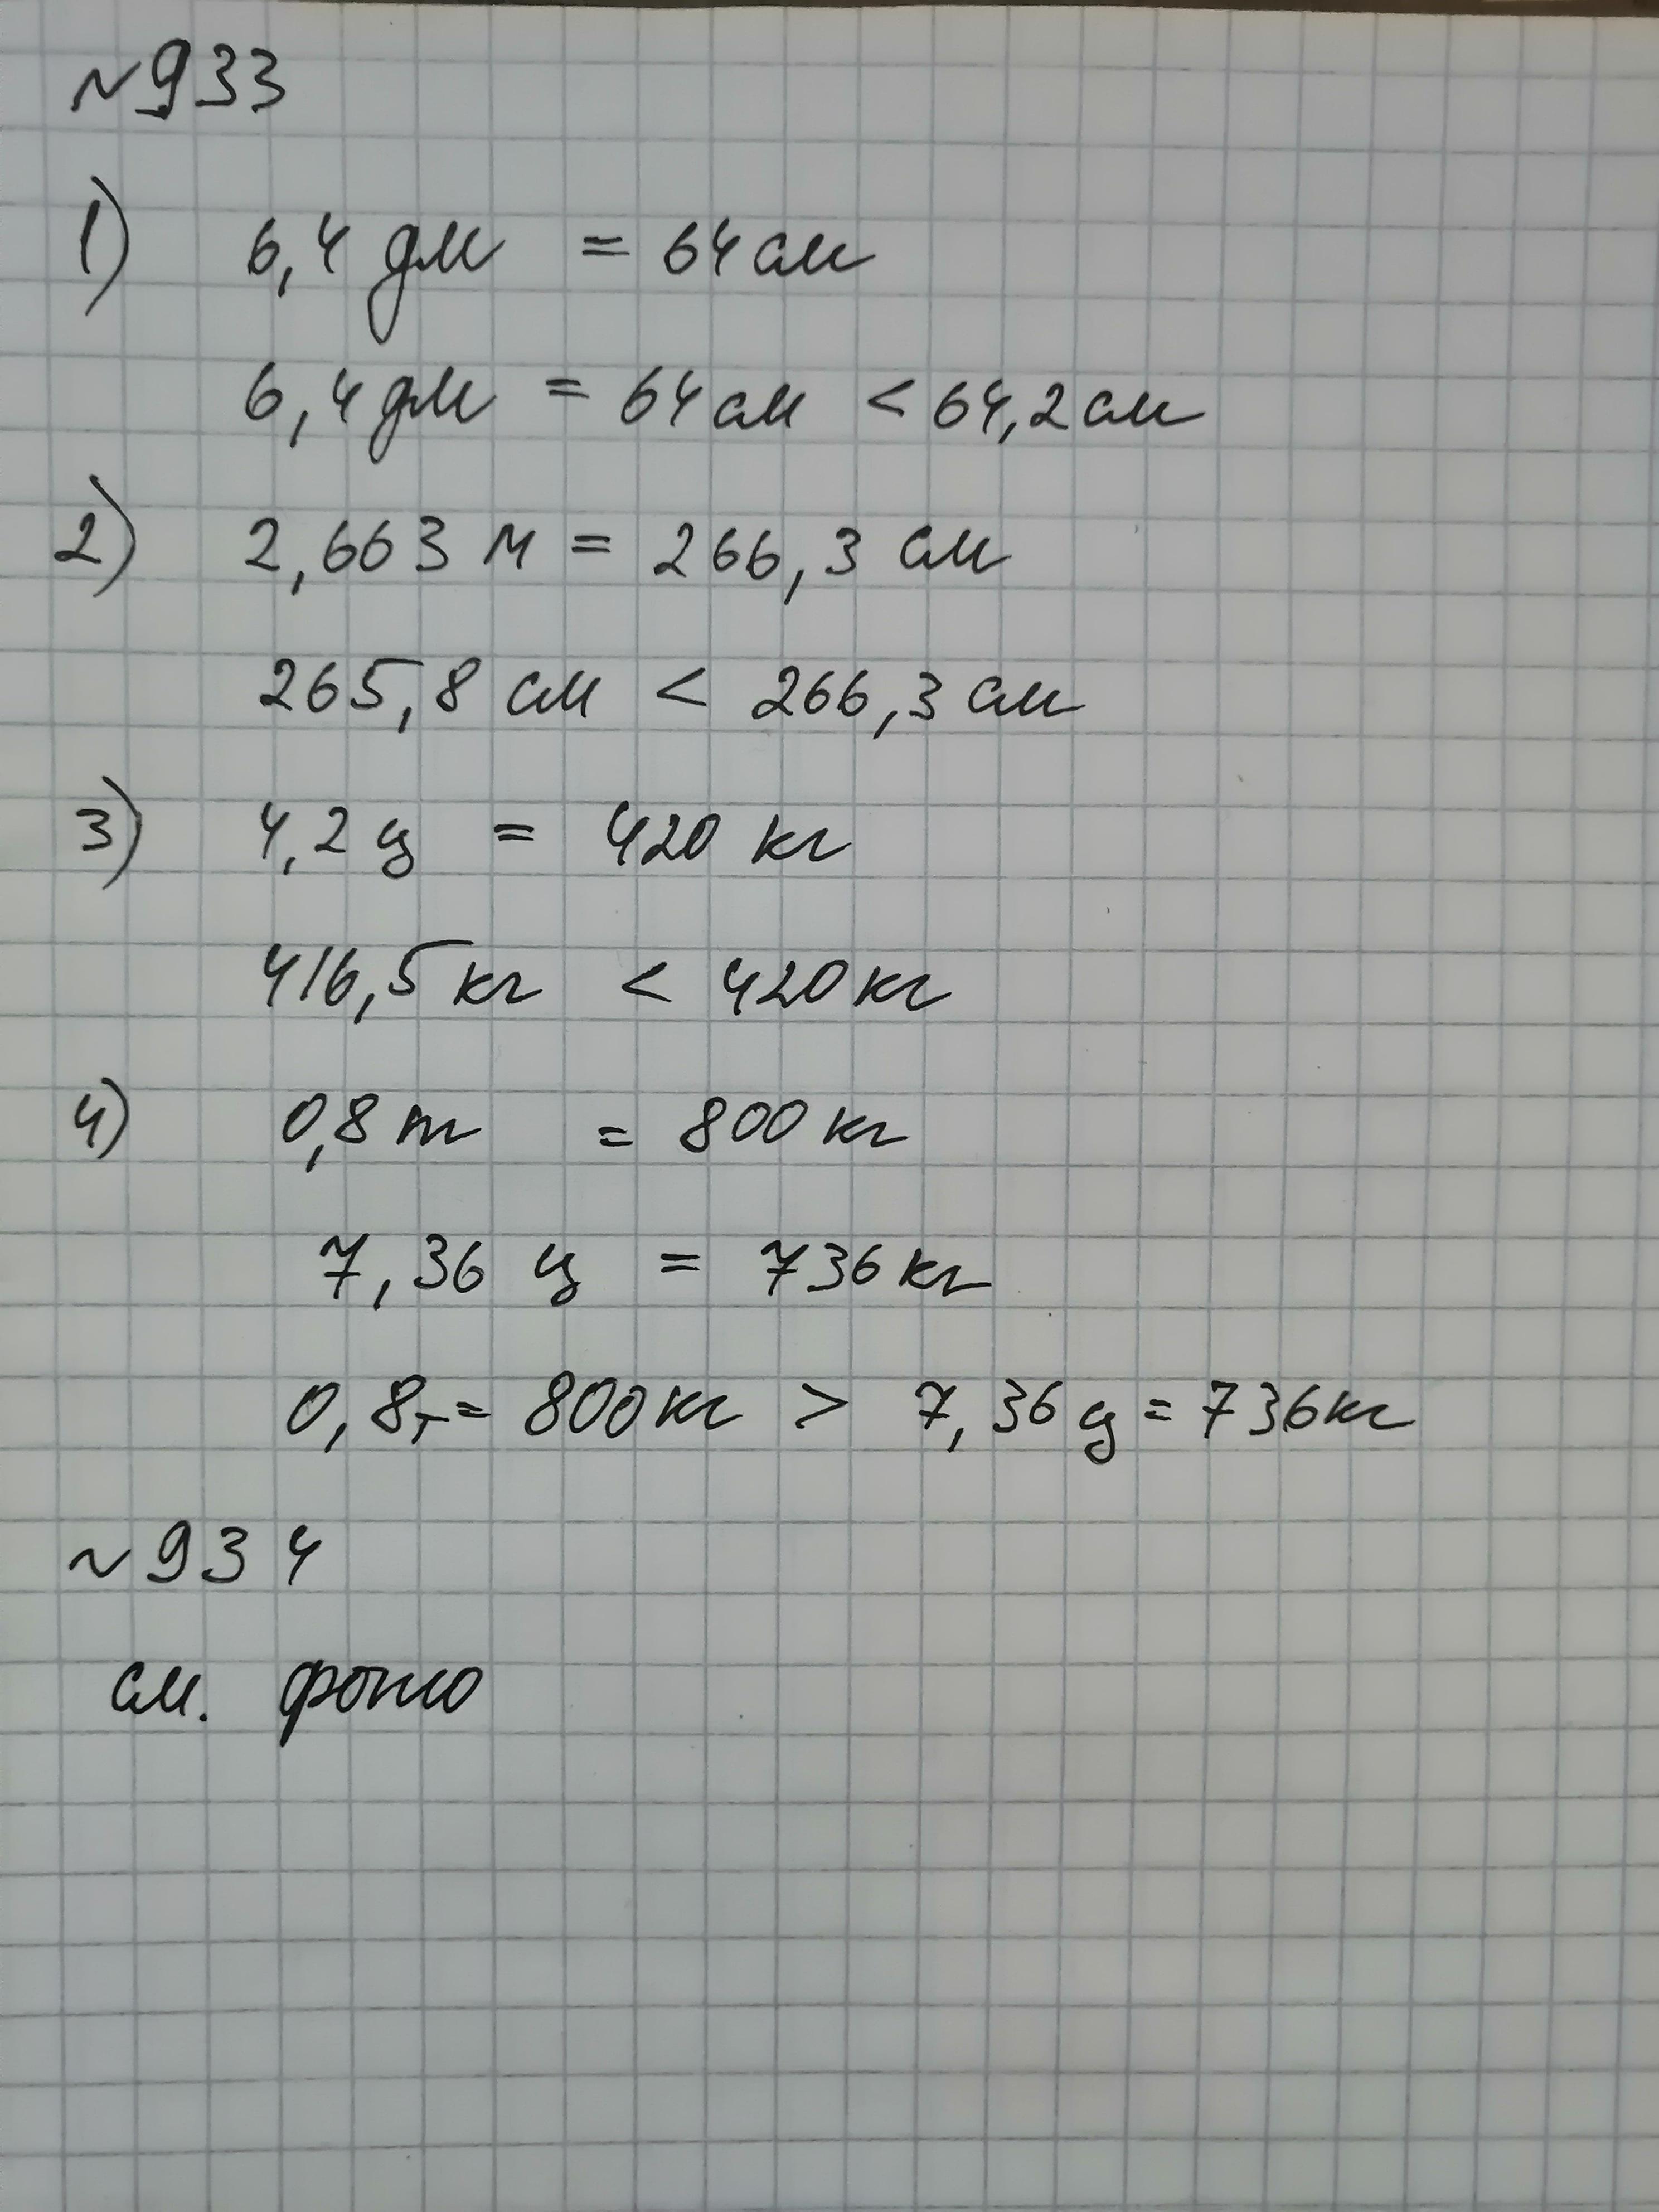 №933
1) 6,4 дм = 64 см
6,4 дм = 64 см < 64,2 см
2) 2,663 м = 266,3 см
265,8 см < 266,3 см
3) 4,2 ц = 420 кг
416,5 кг < 420 кг
4) 0,8 т = 800 кг
7,36 ц = 736 кг
0,8 т = 800 кг > 7,36 ц = 736 кг
№934
см. фото